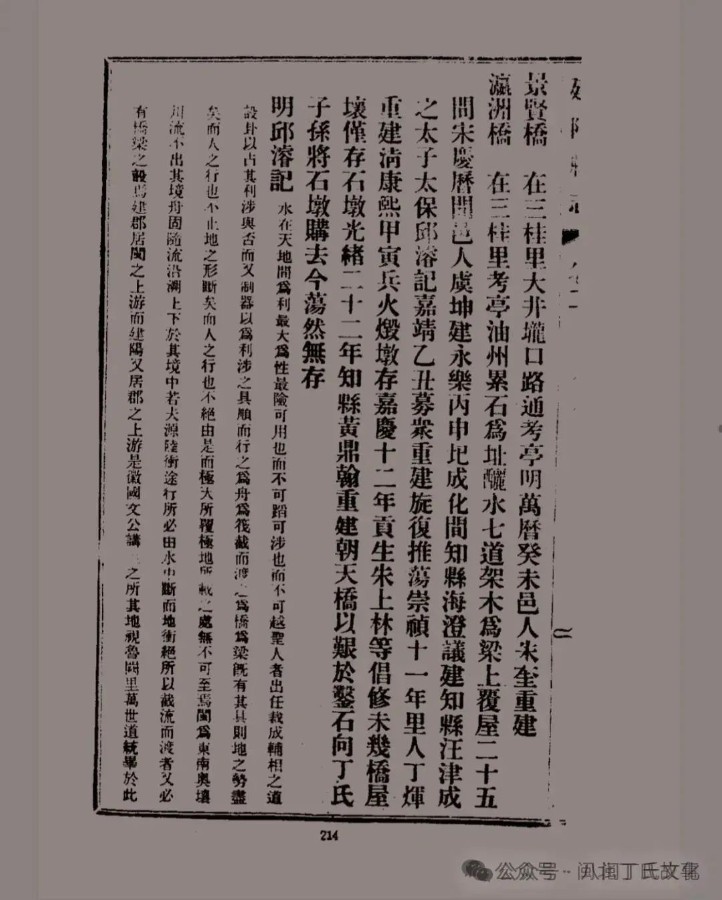 景賢橋　在三桂里大井壠口路通考亭明萬曆癸未邑人朱奎重建
瀛洲橋　在三桂里考亭油州累石爲址釃水七道架木爲梁上覆屋二十五
間宋慶曆間邑人虞坤建永樂丙申圮成化間知縣海澄議建知縣汪津成
之太子太保邱濬記嘉靖乙丑募衆重建旋復推蕩崇禎十一年里人丁煇
重建淸康熙甲寅兵火燬墩存嘉慶十二年貢生朱上林等倡修未幾橋屋
壞僅存石墩光緒二十二年知縣黃鼎翰重建朝天橋以艱於鑿石向丁氏
子孫將石墩購去今蕩然無存
明邱濬記　水在天地間爲利最大爲性最險可用也而不可蹈可涉也而不可越聖人者出任裁成輔相之道
設卦以占其利涉與否而又制器以爲利涉之具順而行之爲舟爲筏截而渡之爲橋爲梁旣有其具則地之勢盡
矣而人之行也不止地之形斷矣而人之行也不絕由是而極天所覆極地所載之處無不可至焉閩爲東南奧壤
川流不出其境舟固隨流沿溯上下於其境中若夫源陸衝途行所必由水中斷而地衝絕所以截流而渡者又必
有橋梁之設焉建郡居閩之上游而建陽又居郡之上游是徽國文公講之所其地視魯闕里萬世道統畢於此
214
公众号·闽祖丁氏故苑